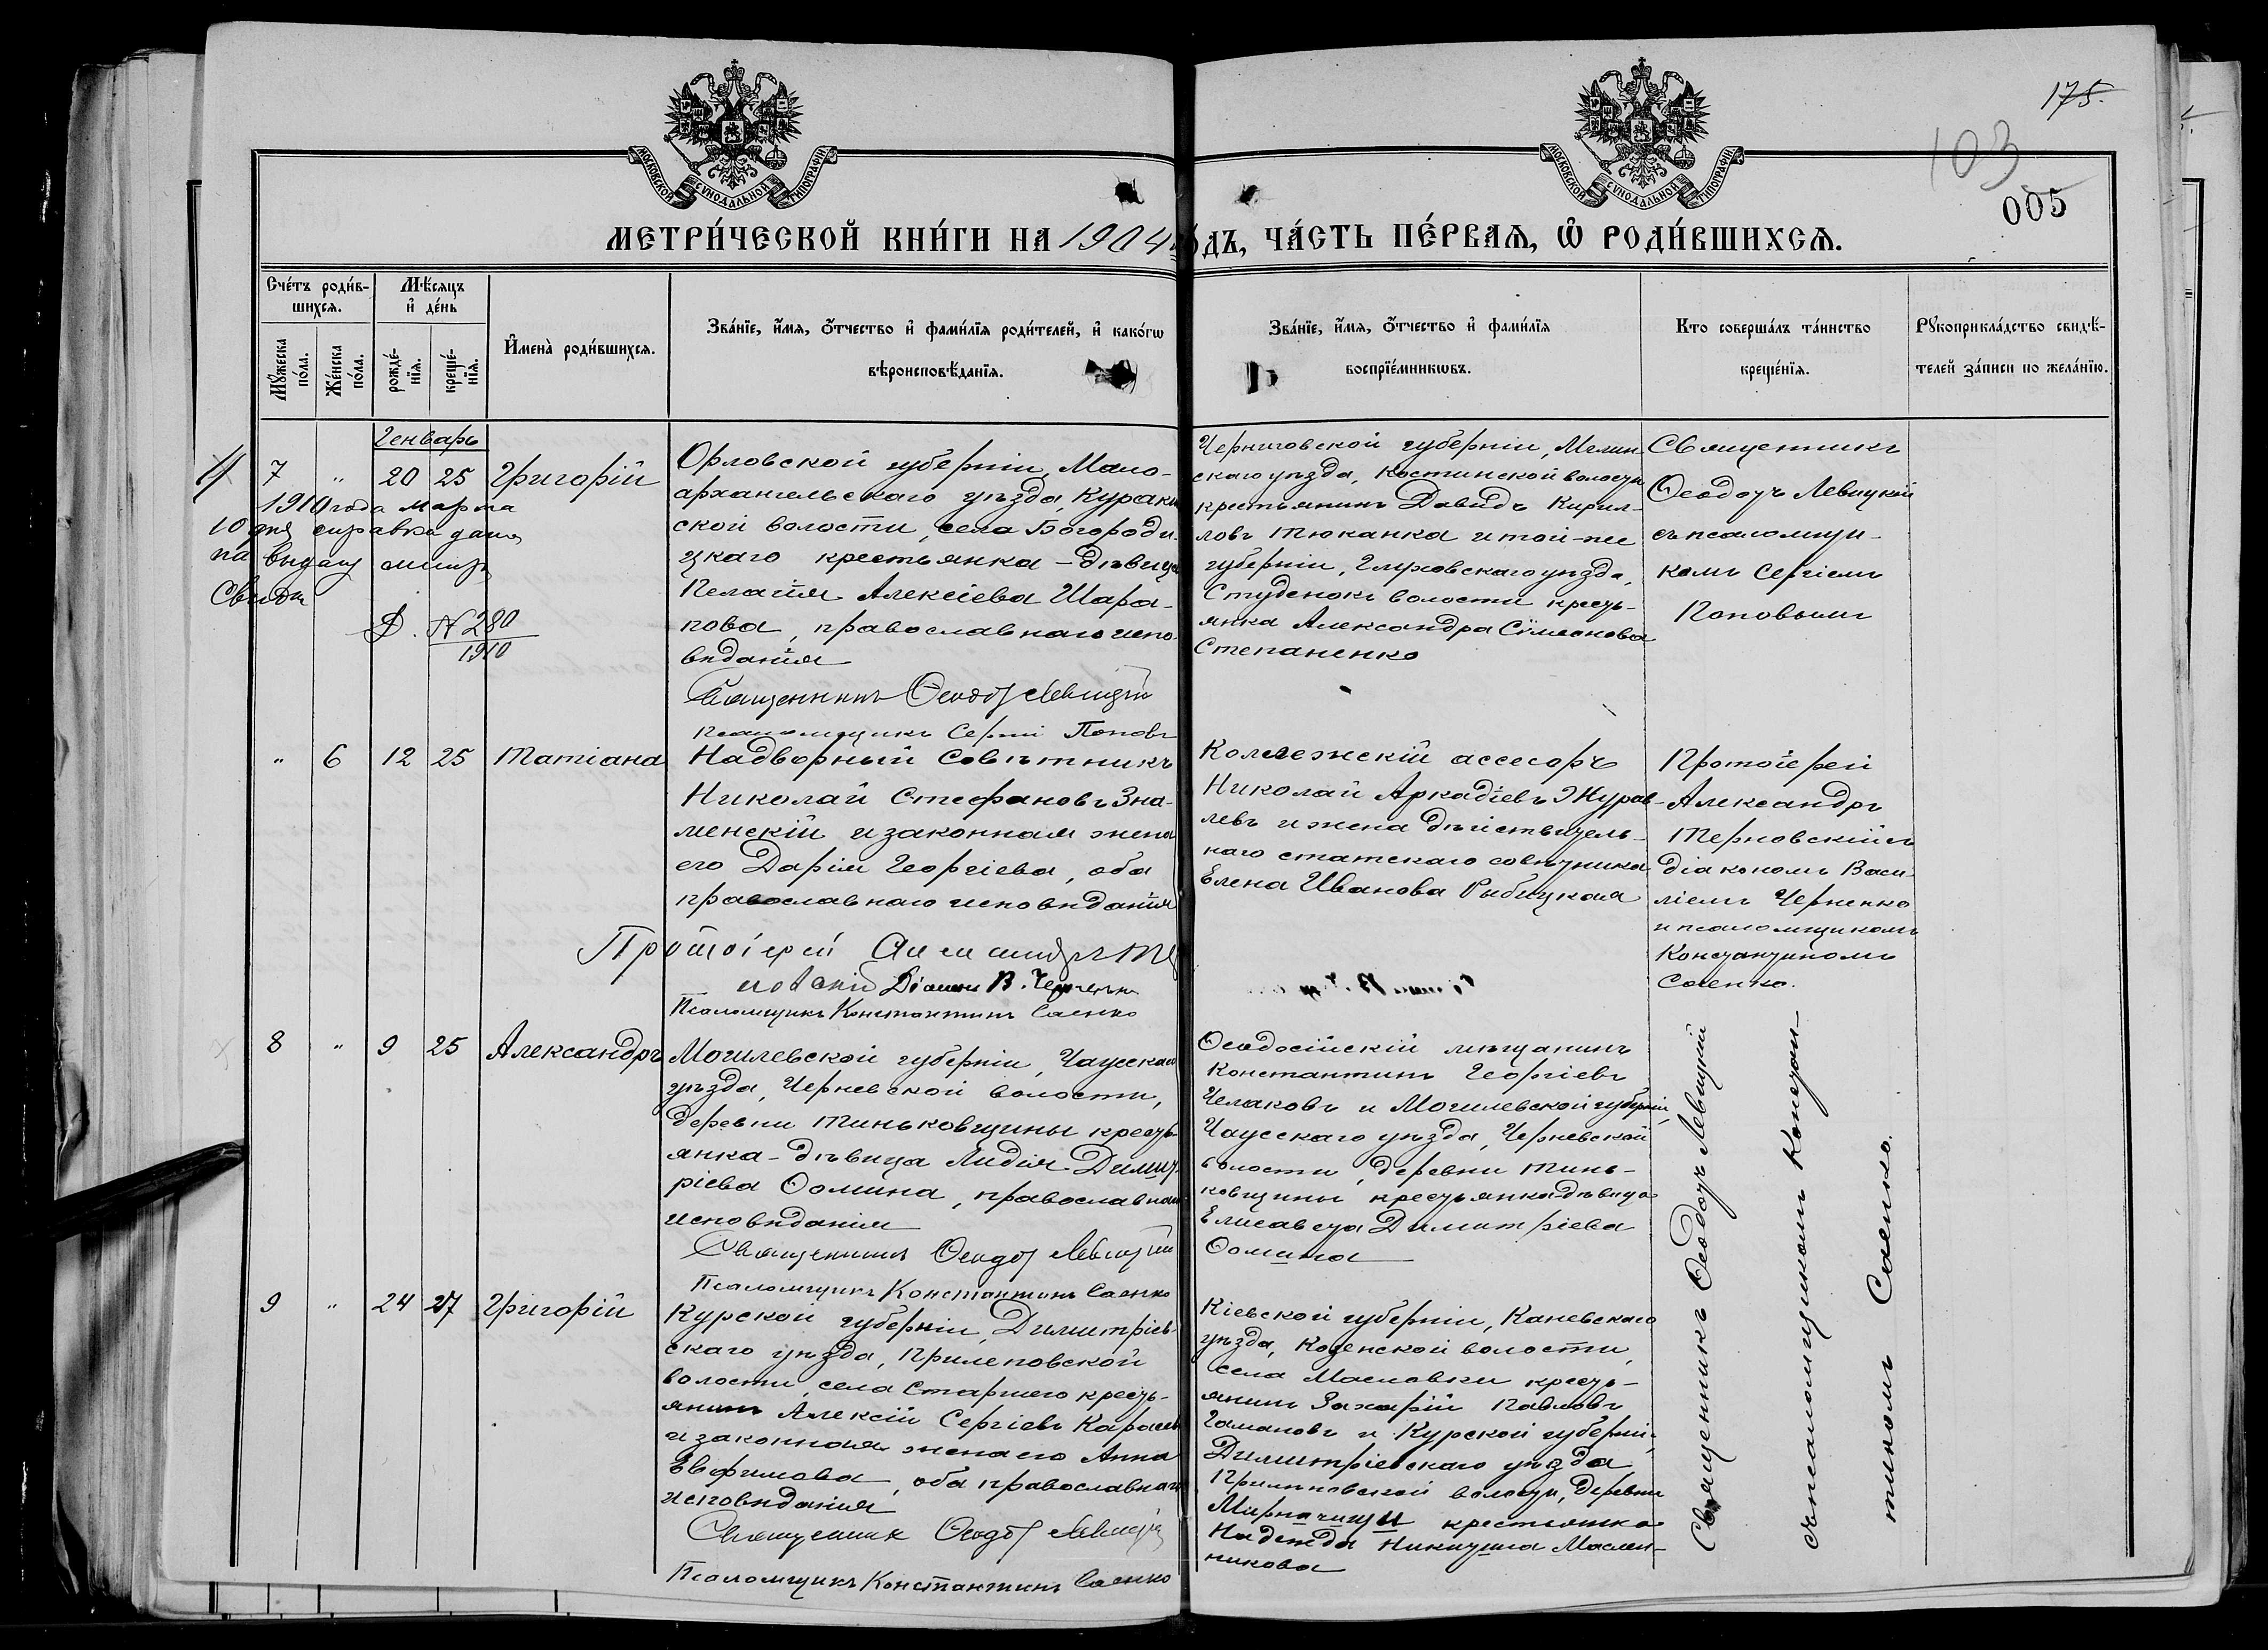 175.
103
005
МОСКОВСКОЙ СѴНОДАЛЬНОЙ ТИПОГРАФІИ
МОСКОВСКОЙ СѴНОДАЛЬНОЙ ТИПОГРАФІИ
МЕТРИ́ЧЕСКОЙ КНИ́ГИ НА 1904 ГО́ДЪ, ЧА́СТЬ ПЕ́РВАѦ, Ѽ РОДИ́ВШИХСѦ.
Сче́тъ роди́в-
шихсѧ.
Мꙋ́жеска
по́ла.
Же́нска
по́ла.
Мѣ́сѧцъ
и҆ де́нь
рожде́-
нїѧ.
креще́-
нїѧ.
И҆мена̀ роди́вшихсѧ.
Зва́нїе, и҆́мѧ, ѻ҆́тчество и҆ фами́лїѧ роди́телей, и҆ како́гѡ
вѣроисповѣ́данїѧ.
Зва́нїе, и҆́мѧ, ѻ҆́тчество и҆ фами́лїѧ
воспрїе́мникѡвъ.
Кто соверша́лъ та́инство
креще́нїѧ.
Рꙋкоприкла́дство свидѣ́-
телей за́писи по жела́нїю.
Генварь
7 " 20 25 Григорій
1910 года марта
10 дня справка дана
на выдачу
№ 280
1910
Орловской губерніи, Мало-
архангельскаго уѣзда, Кураки
ской волости, села Богороди-
цкаго крестьянка-дѣвица
Пелагія Алексіева Шара-
пова, православнаго испо-
вѣданія
Священникъ Ѳеодоръ Левицкій
Псаломщикъ Сергій Поповъ
Черниговской губерніи, Мглин-
скаго уѣзда, Костинской волости
крестьянинъ Давидъ Кирил-
ловъ Тюканка и той-же
губерніи, Глуховскаго уѣзда,
Студенокъ волости кресть-
янка Александра Сѵмеонова
Степаненко
Священникъ
Ѳеодоръ Левицкій
съ псаломщи-
комъ Сергіемъ
Поповымъ
" 6 12 25 Татіана
Надворный Совѣтникъ
Николай Стефановъ Зна-
менскій и законная жена
его Дарія Георгіева, оба
православнаго исповѣданія
Протоіерей Александръ Тер
новскій Діаконъ В. Черненко
Псаломщикъ Константинъ Саенко
Коллежскій ассесоръ
Николай Аркадіевъ Журав-
левъ и жена дѣйствитель-
наго статскаго совѣтника
Елена Иванова Рыбицкая
Протоіерей
Александръ
Терновскій съ
діакономъ Васи-
ліемъ Черненко
и псаломщикомъ
Константиномъ
Саенко.
8 " 9 25 Александръ
Могилевской губерніи, Чаусскаго
уѣзда, Черневской волости,
деревни Тиньковщины кресть-
янка-дѣвица Лидія Димит-
ріева Ѳомина, православнаго
исповѣданія
Священникъ Ѳеодоръ Левицкій
Псаломщикъ Константинъ Саенко
Ѳеодосійскій мѣщанинъ
Константинъ Георгіевъ
Челаковъ и Могилевской губерніи,
Чаусскаго уѣзда, Черневской
волости, деревни Тинь-
ковщины крестьянка дѣвица
Елисавета Димитріева
Ѳомина
9 " 24 27 Григорій
Курской губерніи, Димитріев-
скаго уѣзда, Прилеповской
волости, села Старшего кресть-
янинъ Алексій Сергіевъ Карасевъ
и законная жена его Анна
Евфимова, оба православнаго
исповѣданія
Священникъ Ѳеодоръ Левицкій
Псаломщикъ Константинъ Саенко
Кіевской губерніи, Каневскаго
уѣзда, волости,
села Масловки кресть-
янинъ Захарій Павловъ
Гамановъ и Курской губерніи,
Димитріевскаго уѣзда
Прилеповской волости, деревни
крестьянка
Надежда Никитина Маслен-
никова
Священникъ Ѳеодоръ Левицкій
съ псаломщикомъ Констан-
тиномъ Саенко.